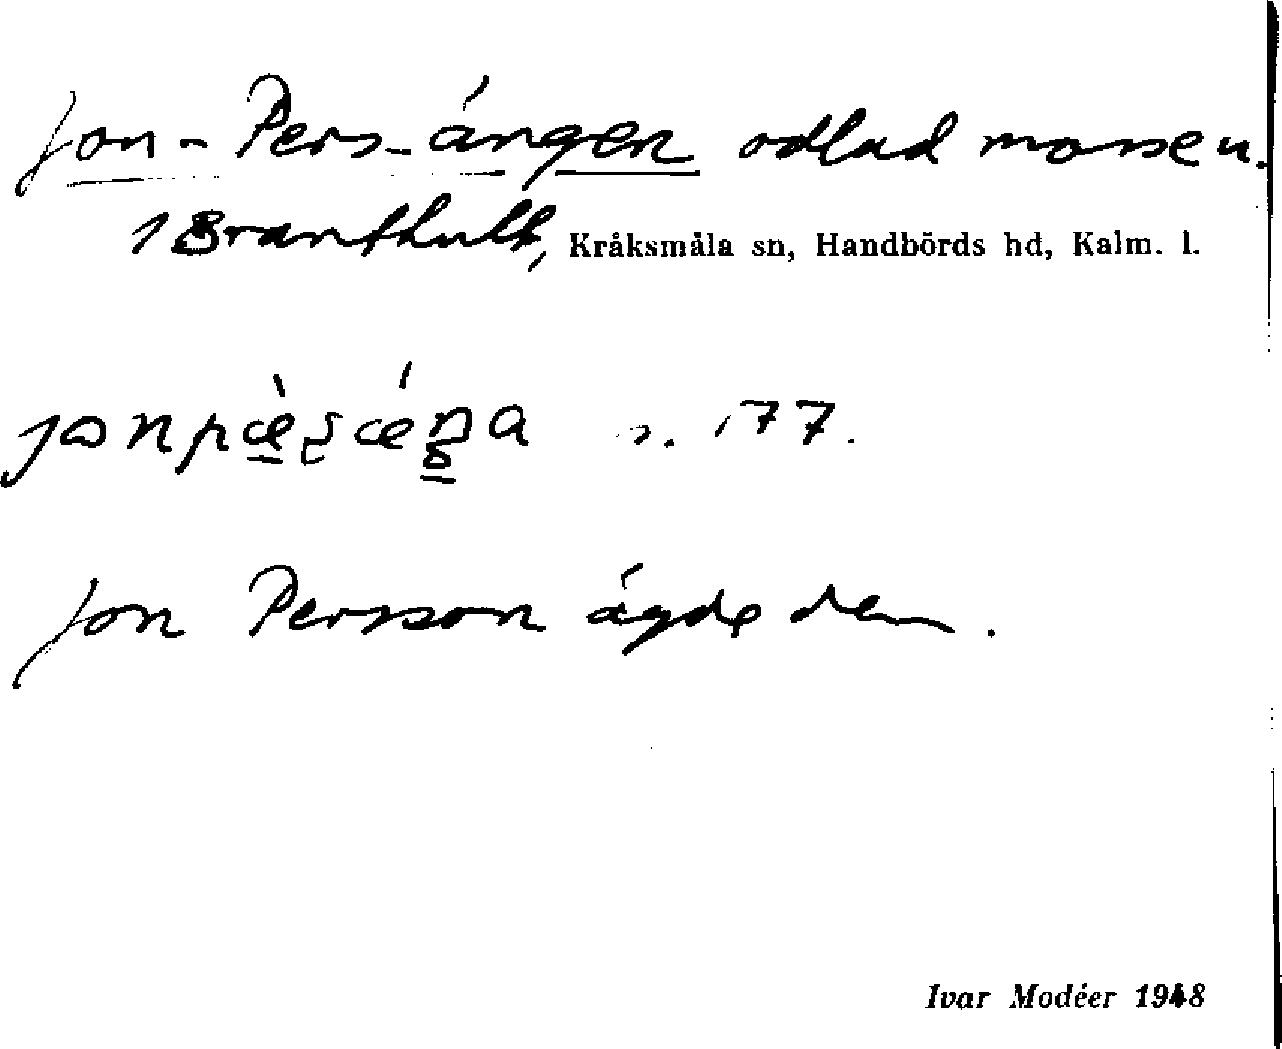 Jon-Pers-ängen odlad mosse u.
1 Branthult, Kråksmåla sn, Handbörds hd, Kalm. l.
s. 177.
Jon Persson ägde den.
Ivar Modéer 1948